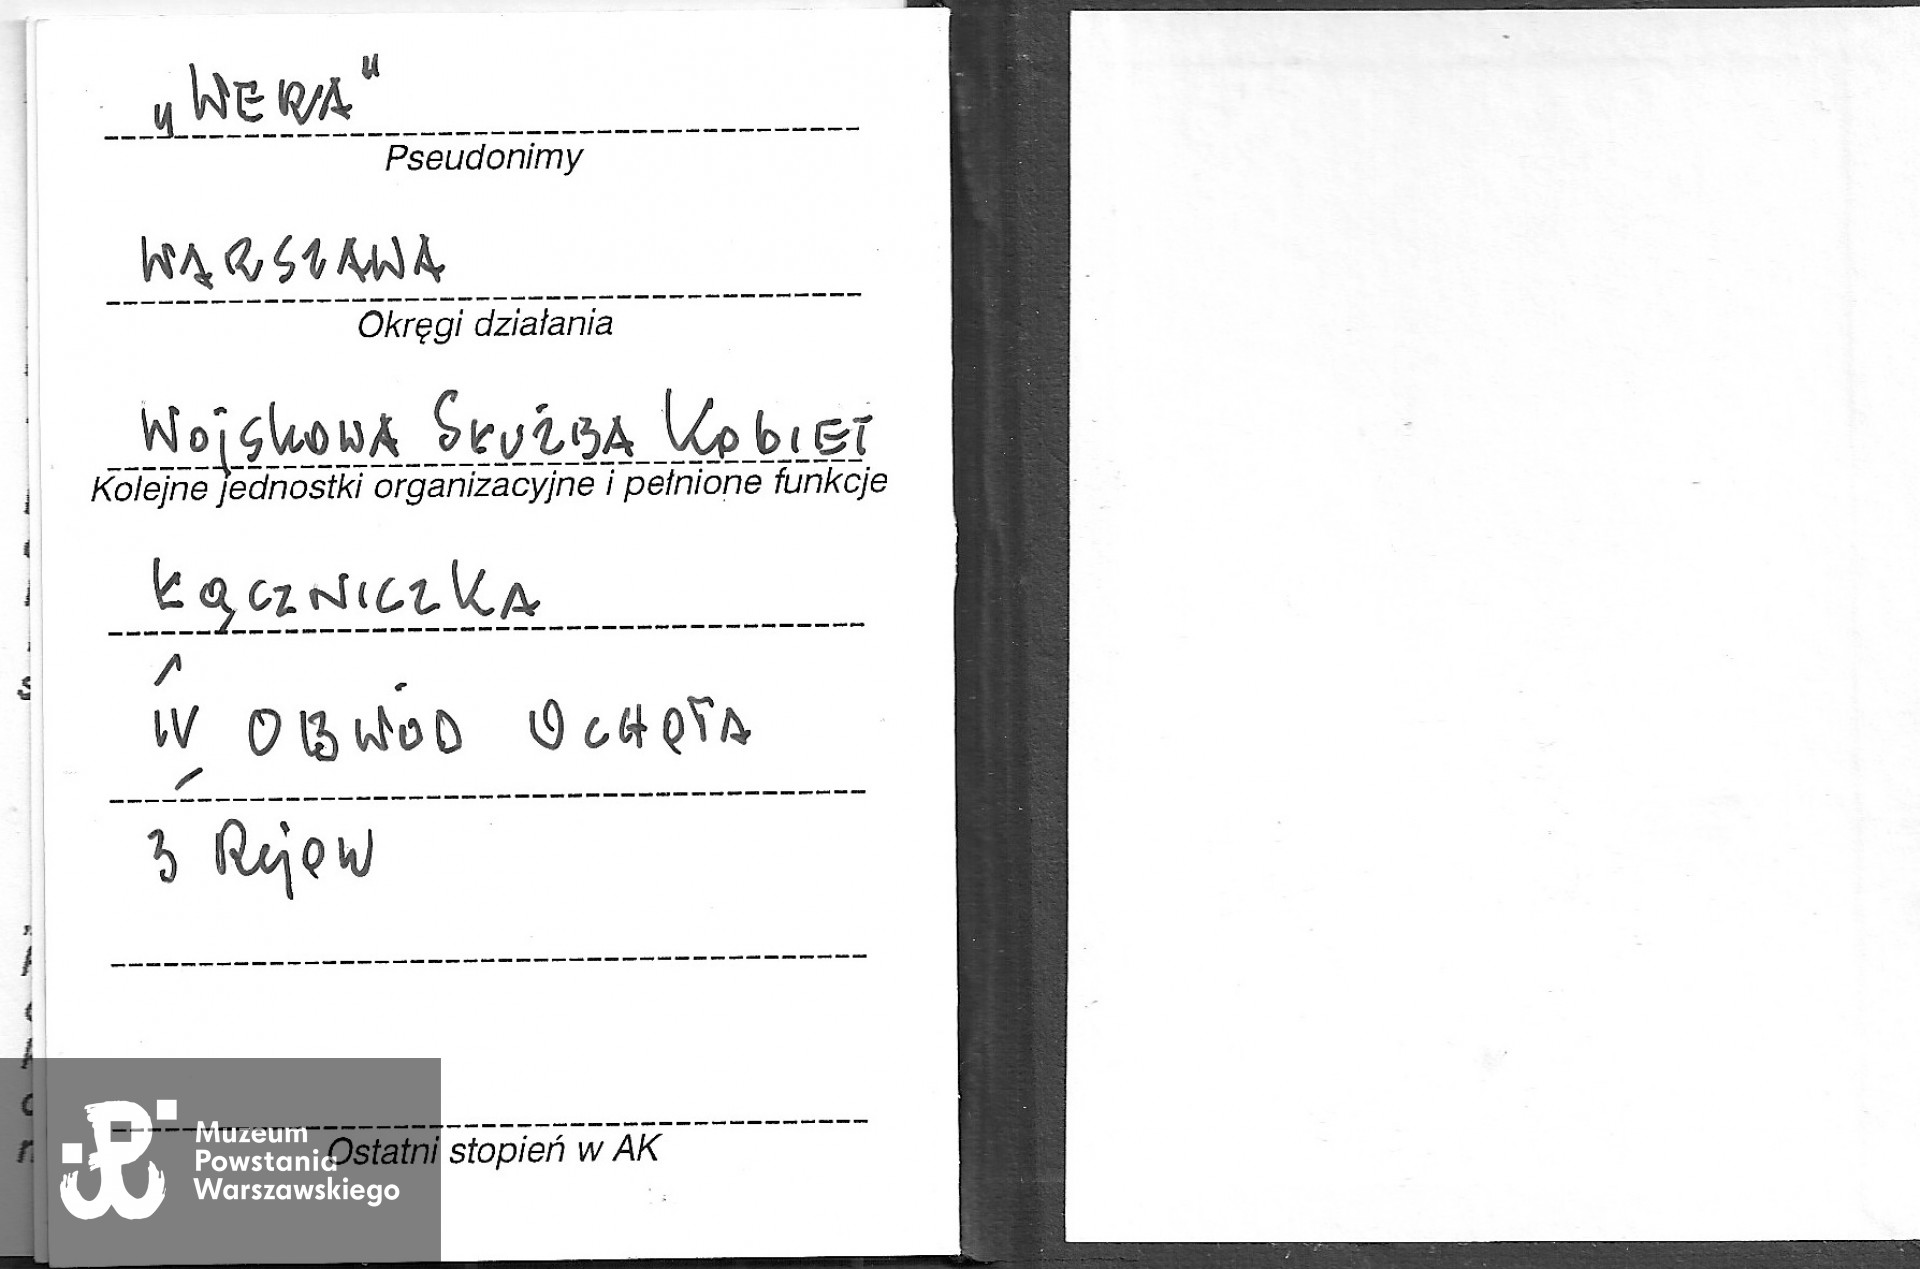 „WERA"
Pseudonimy
WARSZAWA
Okręgi działania
WOJSKOWA SŁUŻBA KOBIET
Kolejne jednostki organizacyjne i pełnione funkcje
ŁĄCZNICZKA
IV OBWÓD OCHOTA
3 Rejon
Ostatni stopień w AK
Muzeum
Powstania
Warszawskiego